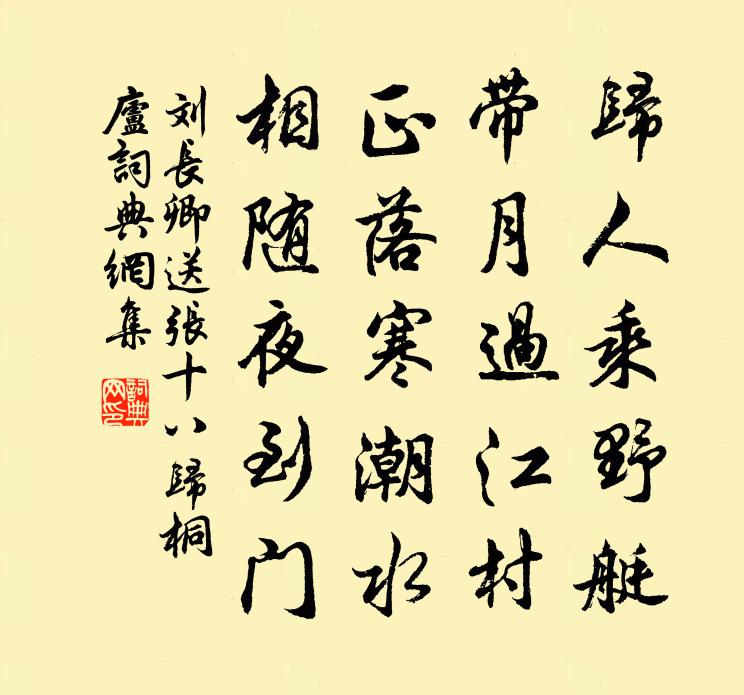 歸人乘野艇
带月過江村
正落寒潮水
相随夜到门
刘長卿送張十八歸桐
廬詞典網集
詞典网印